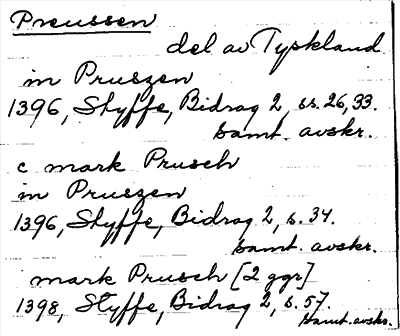 Preussen
del av Tyskland
in Pruszen
1396, Styffe, Bidrag 2, ss. 26, 33.
samt. avskr.
c mark Prusch
in Pruszen
1396, Styffe, Bidrag 2, s. 34.
samt. avskr.
mark Prusch [2 ggr]
1398, Styffe, Bidrag 2, s. 57.
samt. avskr.